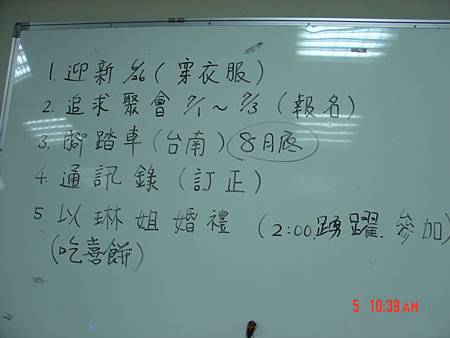 1. 迎新 6/26 (穿衣服)
2. 追求聚會 7/1～7/3 (報名)
3. 腳踏車 (台南) 8月底
4. 通訊錄 (訂正)
5. 以琳姐婚禮 (2:00 踴躍參加)
(吃喜餅)
5 10:39 AM